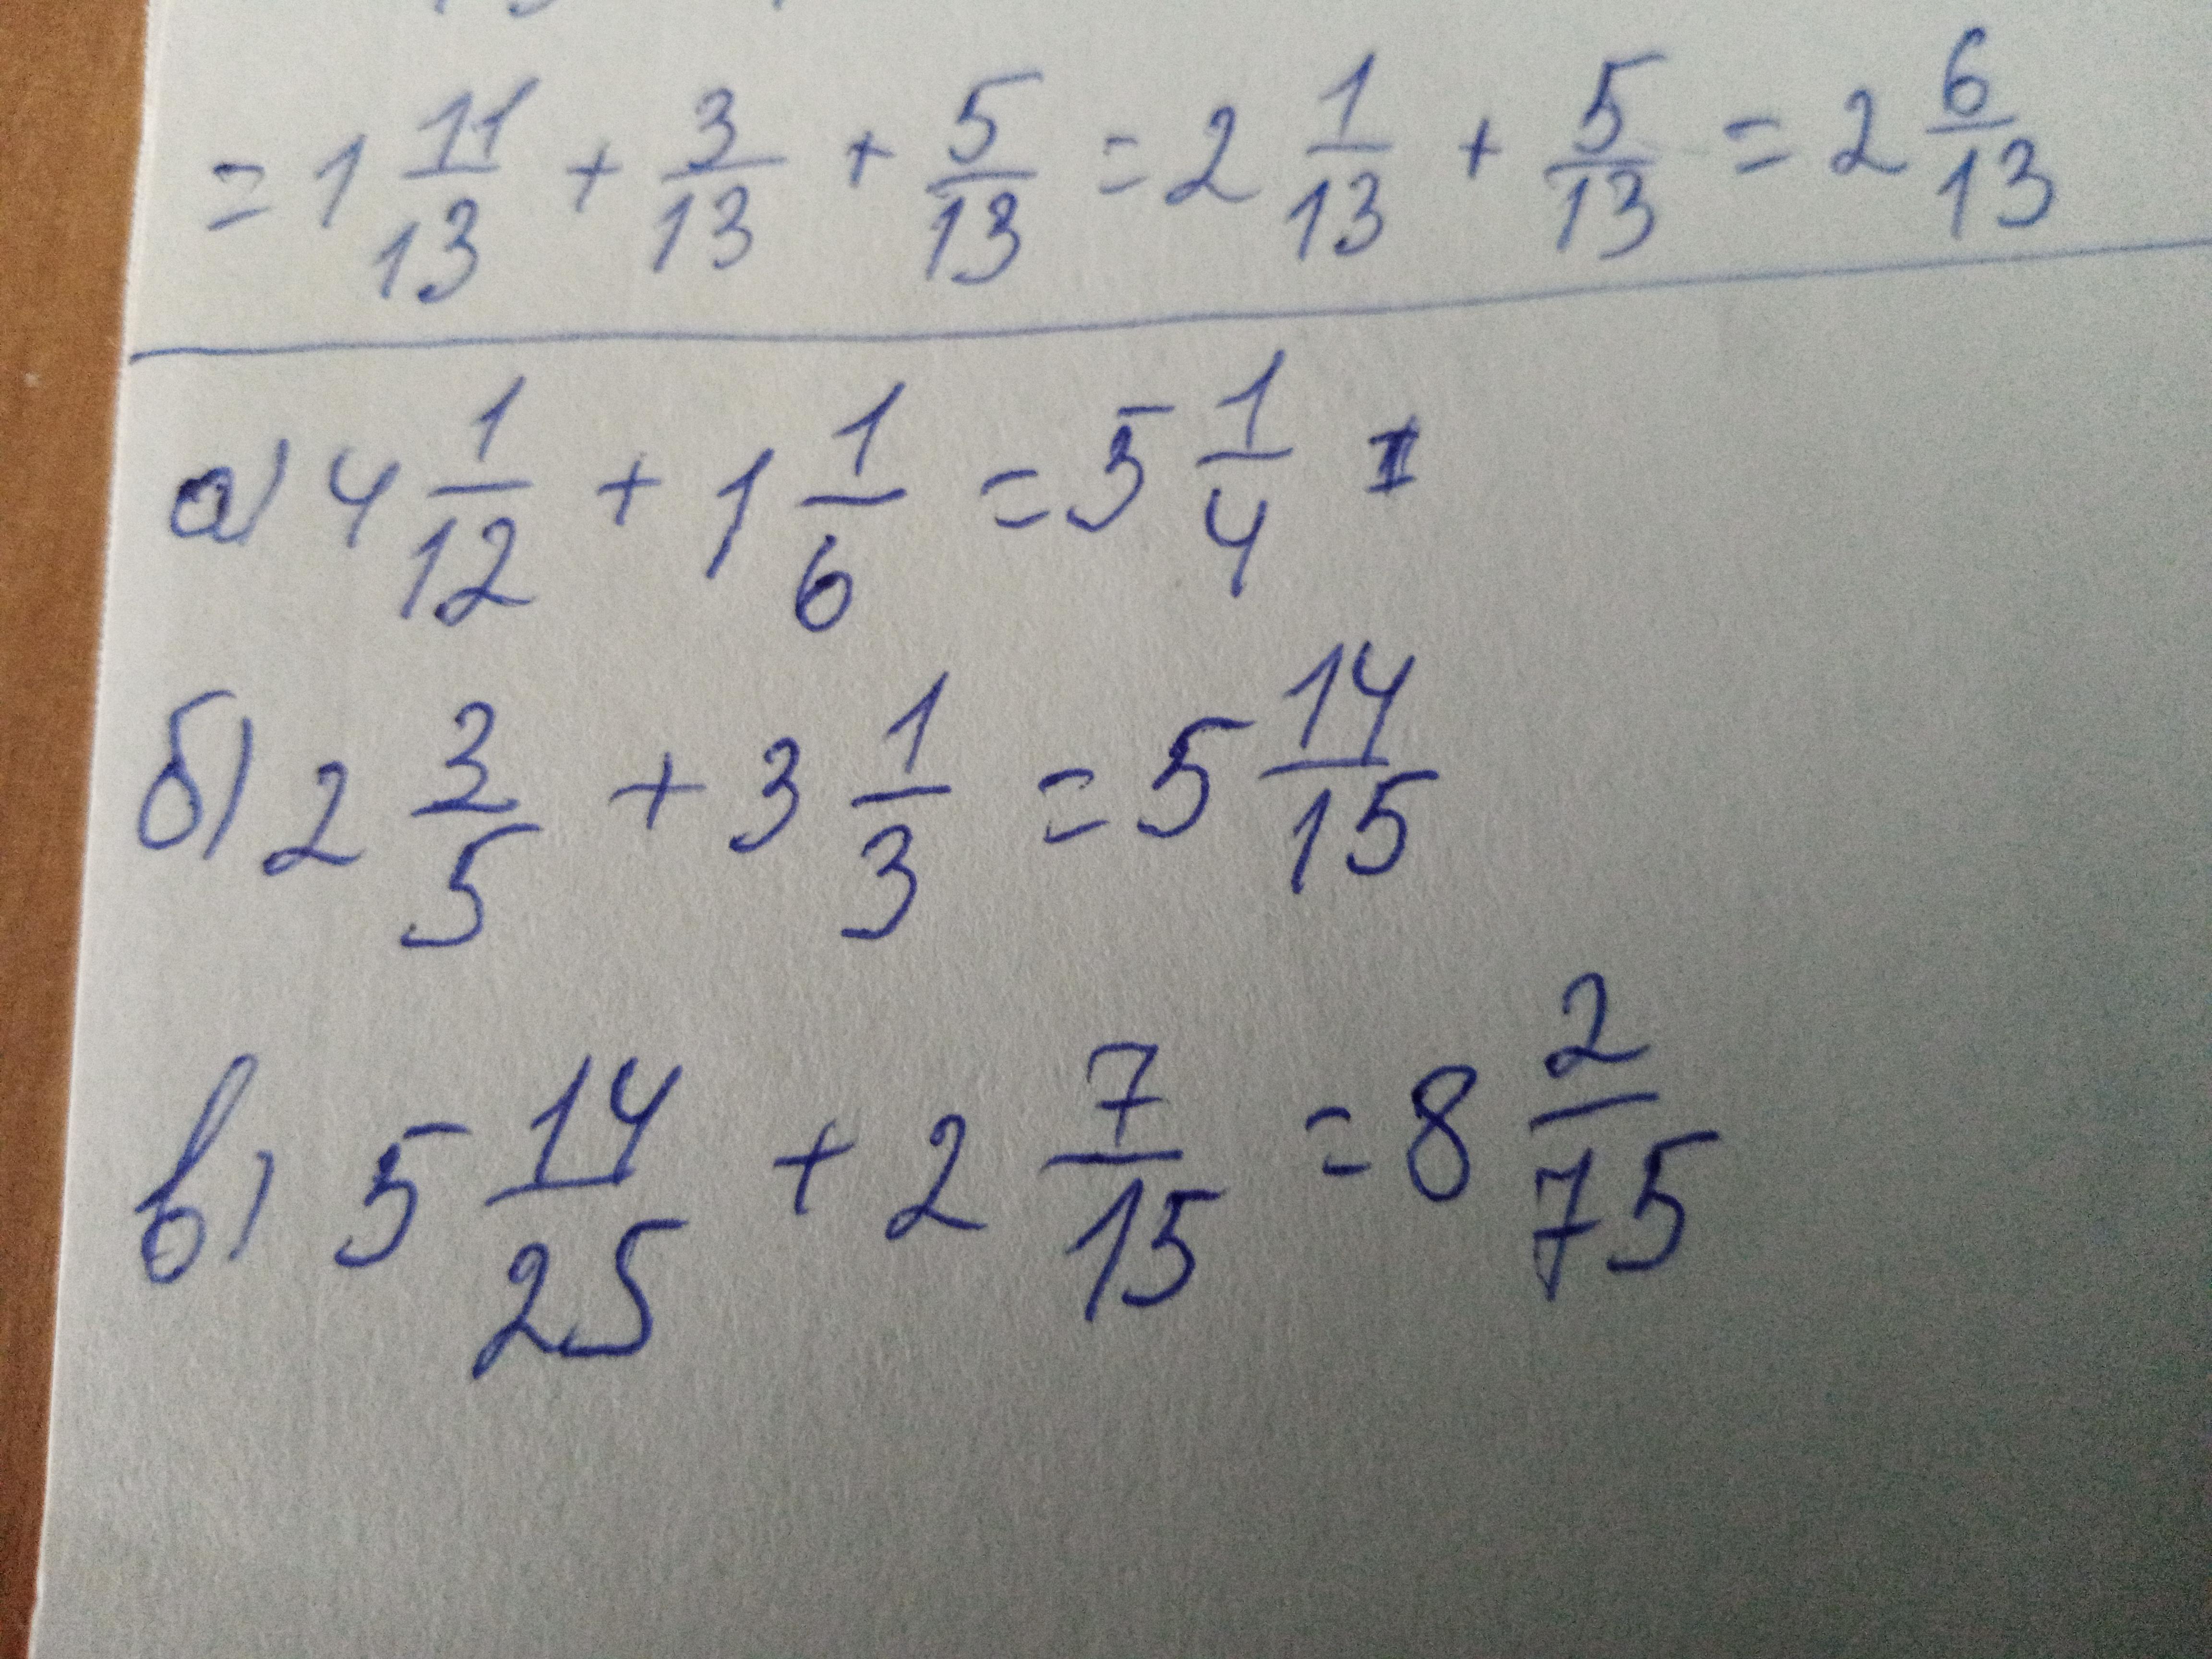 = 1 11/13 + 3/13 + 5/13 = 2 1/13 + 5/13 = 2 6/13
а) 4 1/12 + 1 1/6 = 5 1/4
б) 2 3/5 + 3 1/3 = 5 14/15
в) 5 14/25 + 2 7/15 = 8 2/75